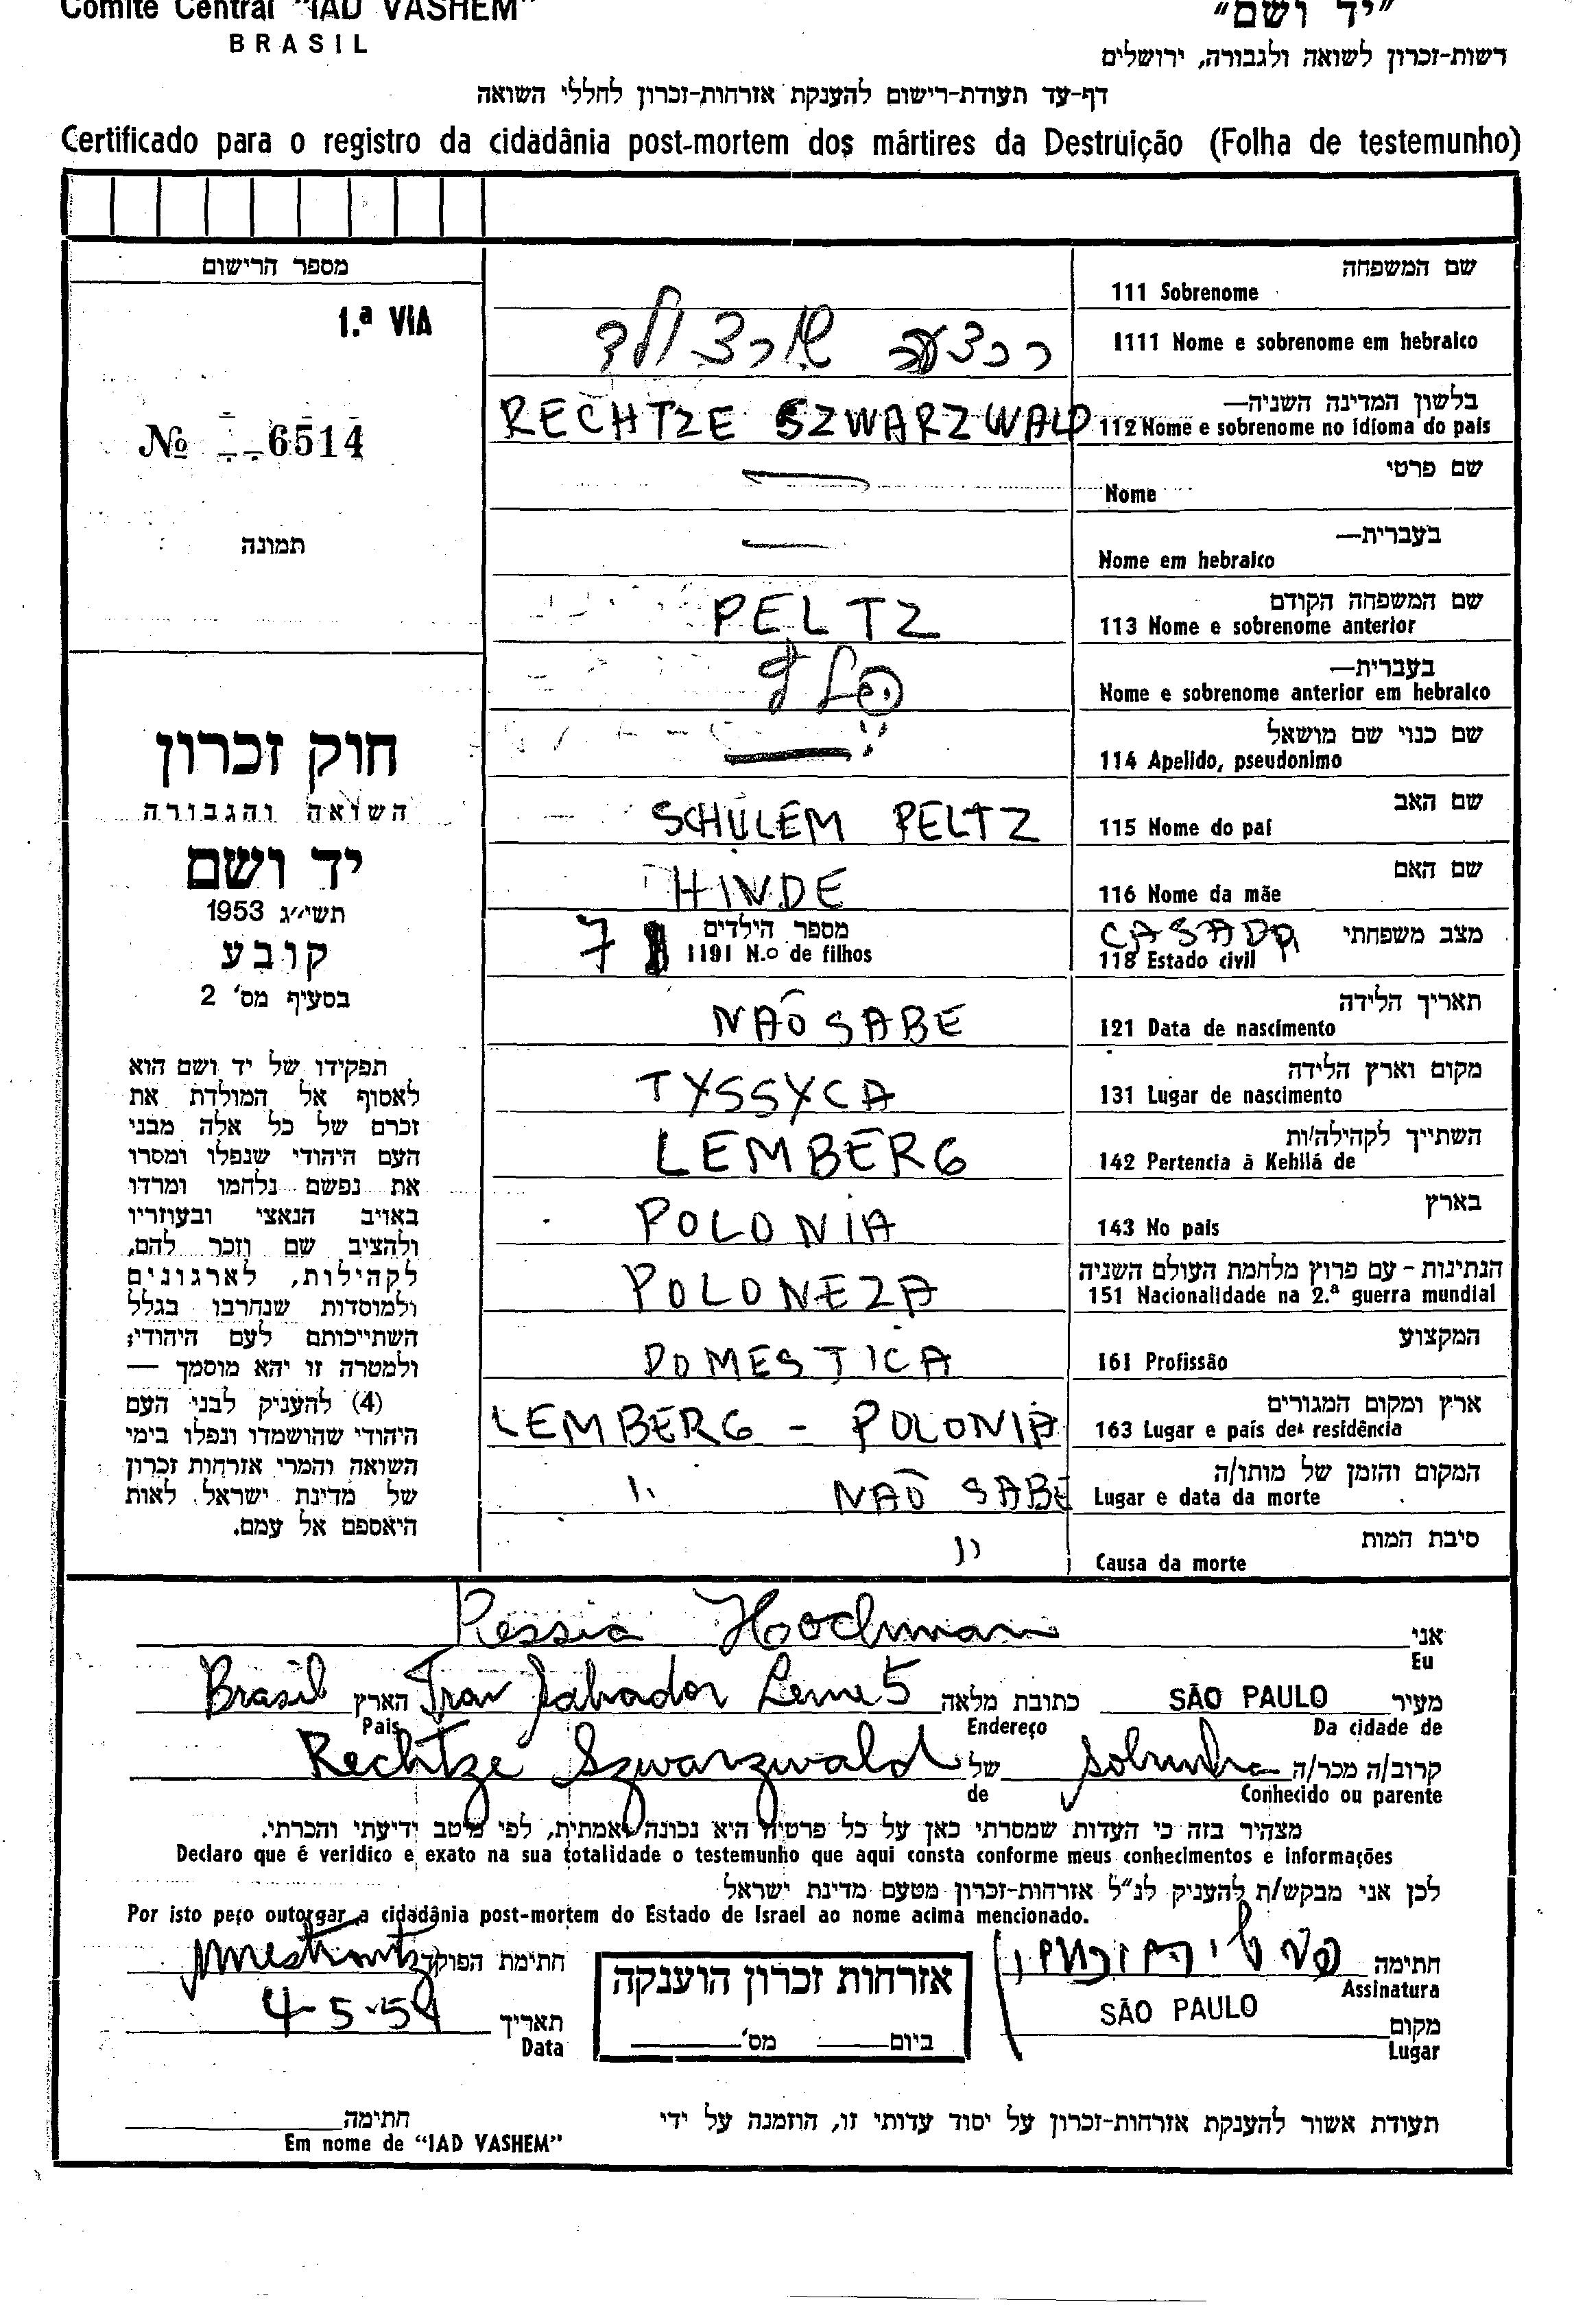 Comité Central "IAD VASHEM"
BRASIL
"יד ושם"
רשות-זכרון לשואה ולגבורה, ירושלים
דף-עד תעודת-רישום להענקת אזרחות-זכרון לחללי השואה
Certificado para o registro da cidadânia post-mortem dos mártires da Destruição (Folha de testemunho)
מספר הרישום
1.ª VIA
№ 6514
תמונה
חוק זכרון
השואה והגבורה
יד ושם
תשי״ג 1953
קובע
בסעיף מס' 2
תפקידו של יד ושם הוא
לאסוף אל המולדת את
זכרם של כל אלה מבני
העם היהודי שנפלו ומסרו
את נפשם נלחמו ומרדו
באויב הנאצי ובעוזריו
ולהציב שם וזכר להם,
לקהילות, לארגונים
ולמוסדות שנחרבו בגלל
השתייכותם לעם היהודי;
ולמטרה זו יהא מוסמך —
(4) להעניק לבני העם
היהודי שהושמדו ונפלו בימי
השואה והמרי אזרחות זכרון
של מדינת ישראל לאות
היאספם אל עמם.
שם המשפחה
111 Sobrenome
1111 Nome e sobrenome em hebraico
שורצולד
בלשון המדינה השניה—
112 Nome e sobrenome no idioma do pais
RECHTZE SZWARZWALD
שם פרטי
Nome
—
בעברית—
Nome em hebraico
—
שם המשפחה הקודם
113 Nome e sobrenome anterior
PELTZ
בעברית—
Nome e sobrenome anterior em hebraico
פלץ
שם כנוי שם מושאל
114 Apelido, pseudonimo
—
שם האב
115 Nome do pai
SCHULEM PELTZ
שם האם
116 Nome da mãe
HINDE
מצב משפחתי
118 Estado civil
CASADA
מספר הילדים
1191 N.o de filhos
7
תאריך הלידה
121 Data de nascimento
NÃO SABE
מקום וארץ הלידה
131 Lugar de nascimento
TYSSYCA
השתייך לקהילה/ות
142 Pertencia à Kehilá de
LEMBERG
בארץ
143 No pais
POLONIA
הנתינות - עם פרוץ מלחמת העולם השניה
151 Nacionalidade na 2.ª guerra mundial
POLONEZA
המקצוע
161 Profissão
DOMESTICA
ארץ ומקום המגורים
163 Lugar e país de residência
LEMBERG - POLONIA
המקום והזמן של מותו/ה
Lugar e data da morte
NÃO SABE "
סיבת המות
Causa da morte
"
אני Pessia Hochman
Eu
מעיר SÃO PAULO כתובת מלאה Trav Salvador Leme 5 הארץ Brasil
Da cidade de Endereço Pais
קרוב/ה מכר/ה sobrinha של Rechtze Szwarzwald
Conhecido ou parente de
מצהיר בזה כי העדות שמסרתי כאן על כל פרטיה היא נכונה ואמתית, לפי מיטב ידיעתי והכרתי.
Declaro que é veridico e exato na sua totalidade o testemunho que aqui consta conforme meus conhecimentos e informações
לכן אני מבקש/ת להעניק לנ"ל אזרחות-זכרון מטעם מדינת ישראל
Por isto peço outorgar a cidadânia post-mortem do Estado de Israel ao nome acima mencionado.
חתימה
Assinatura
מקום SÃO PAULO
Lugar
אזרחות זכרון הוענקה
ביום מס'
חתימת הפוקד
תאריך 4-5-54
Data
תעודת אשור להענקת אזרחות-זכרון על יסוד עדותי זו, הוזמנה על ידי
חתימה
Em nome de "IAD VASHEM"